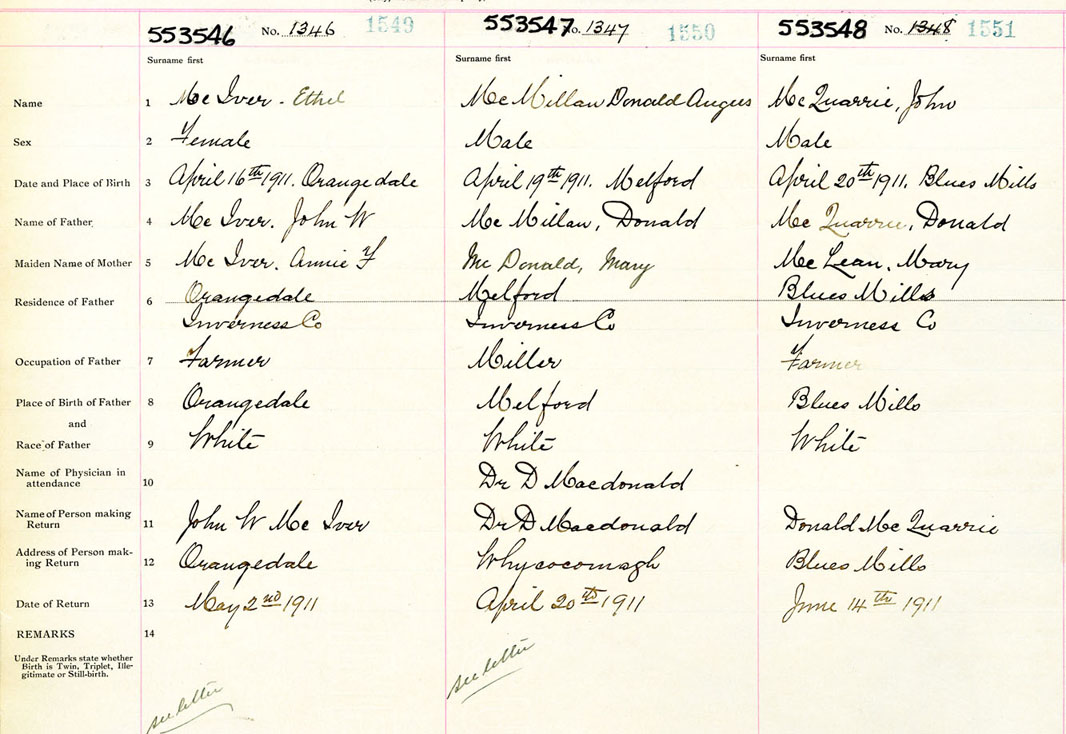 553546 No. 1346 1549 553547 No. 1347 1550 553548 No. 1348 1551
Surname first Surname first Surname first
Name 1 Mc Iver. Ethel Mc Millan Donald Angus Mc Quarrie, John
Sex 2 Female Male Male
Date and Place of Birth 3 April 16th 1911. Orangedale April 19th 1911. Melford April 20th 1911. Blues Mills
Name of Father 4 Mc Iver. John W Mc Millan, Donald Mc Quarrie, Donald
Maiden Name of Mother 5 Mc Iver. Annie F Mc Donald, Mary Mc Lean. Mary
Residence of Father 6 Orangedale Melford Blues Mills
Inverness Co Inverness Co Inverness Co
Occupation of Father 7 Farmer Miller Farmer
Place of Birth of Father 8 Orangedale Melford Blues Mills
and
Race of Father 9 White White White
Name of Physician in
attendance 10 Dr D Macdonald
Name of Person making
Return 11 John W Mc Iver Dr D Macdonald Donald Mc Quarrie
Address of Person mak-
ing Return 12 Orangedale Whycocomagh Blues Mills
Date of Return 13 May 2nd 1911 April 20th 1911 June 14th 1911
REMARKS 14
Under Remarks state whether
Birth is Twin, Triplet, Ille-
gitimate or Still-birth.
see letter see letter